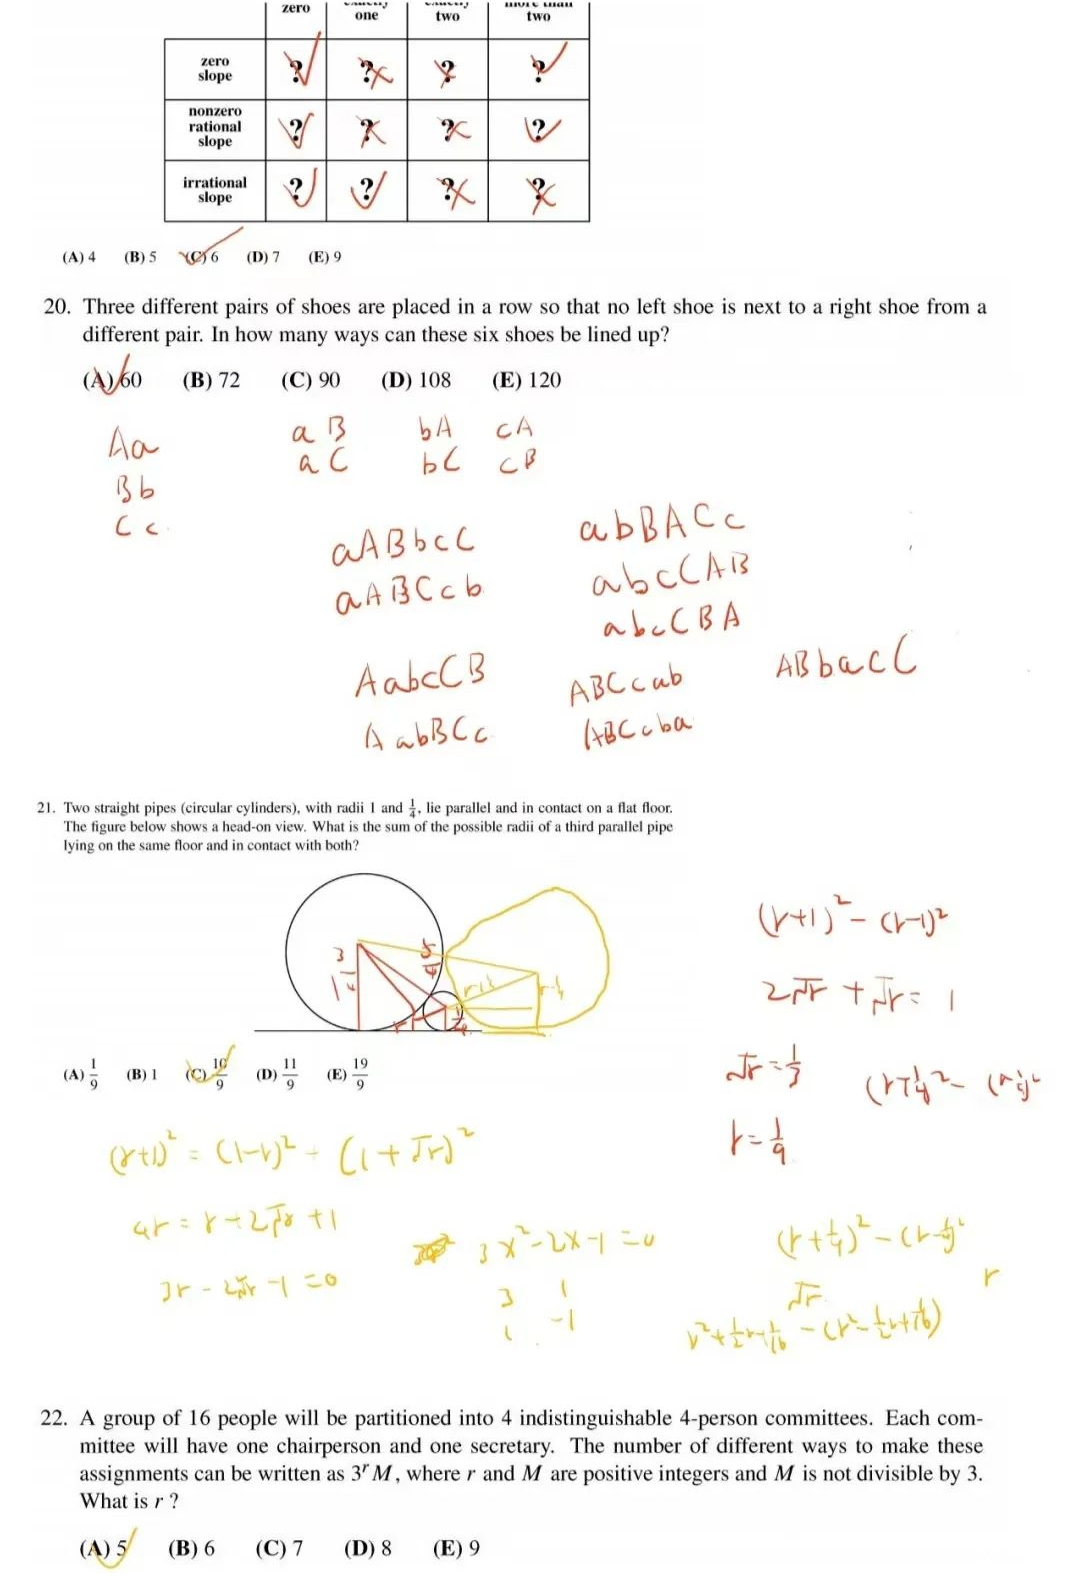 zero one two two
zero
slope ? ? ? ?
nonzero
rational
slope ? ? ? ?
irrational
slope ? ? ? ?
(A) 4 (B) 5 (C) 6 (D) 7 (E) 9
20. Three different pairs of shoes are placed in a row so that no left shoe is next to a right shoe from a
different pair. In how many ways can these six shoes be lined up?
(A) 60 (B) 72 (C) 90 (D) 108 (E) 120
Aa
Bb
Cc
aB bA cA
aC bC cB
aABbcC
aABCcb
abBACc
abcCAB
abcCBA
AabcCB
AabBCc
ABCcab
ABCcba
ABbacC
21. Two straight pipes (circular cylinders), with radii 1 and 1/4, lie parallel and in contact on a flat floor.
The figure below shows a head-on view. What is the sum of the possible radii of a third parallel pipe
lying on the same floor and in contact with both?
(r+1)² - (r-1)²
2√r + √r = 1
√r = 1/3
r = 1/9
(A) 1/9 (B) 1 (C) 10/9 (D) 11/9 (E) 19/9
(r+1)² = (1-r)² + (1+√r)²
4r = r+2√r+1
3r - 2√r - 1 = 0
3x²-2x-1=0
3 1
1 -1
(r+1/4)² - (r-1/4)²
√r
r
r²+1/2r+1/16 - (r²-1/2r+1/16)
22. A group of 16 people will be partitioned into 4 indistinguishable 4-person committees. Each com-
mittee will have one chairperson and one secretary. The number of different ways to make these
assignments can be written as 3ʳM, where r and M are positive integers and M is not divisible by 3.
What is r ?
(A) 5 (B) 6 (C) 7 (D) 8 (E) 9